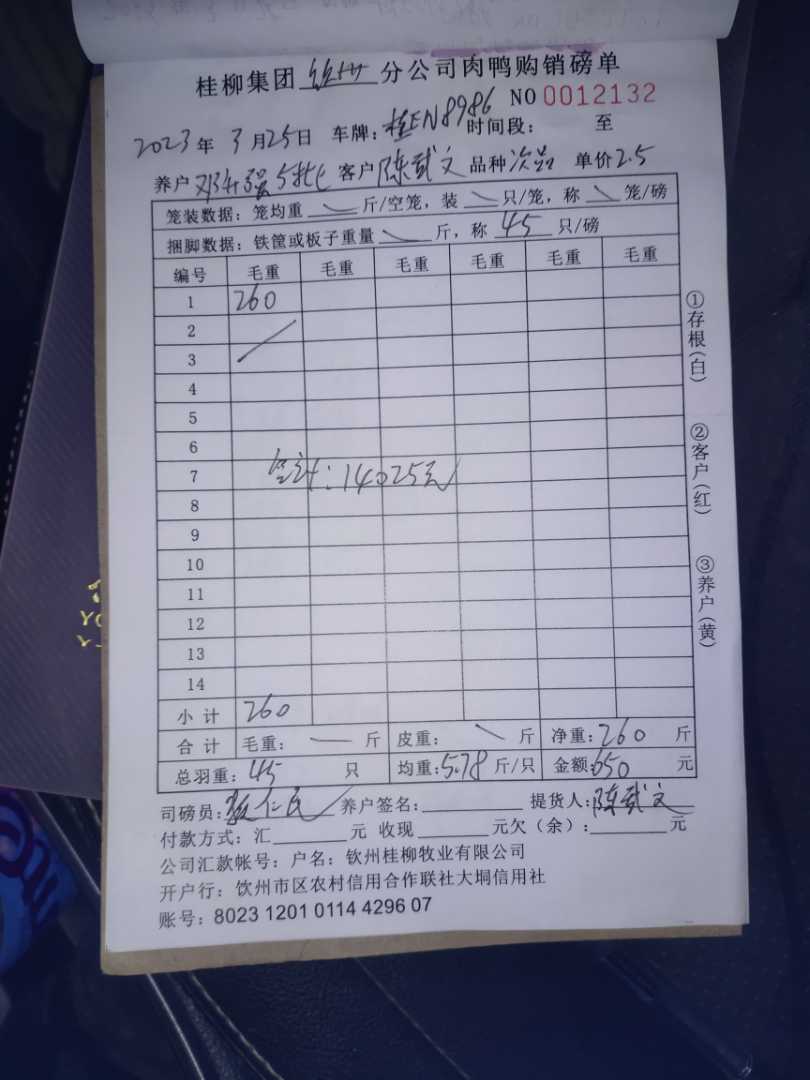 桂柳集团 钦州 分公司肉鸭购销磅单
NO 0012132
2023年 3月25日 车牌：桂EN8986 时间段： 至
养户 邓升强5批 客户 陈武文 品种 次品 单价 2.5
笼装数据：笼均重 斤/空笼，装 只/笼，称 笼/磅
捆脚数据：铁筐或板子重量 斤，称 45 只/磅
编号 毛重 毛重 毛重 毛重 毛重 毛重
1 260
2
3
4
5
6
7
合计：14025元
8
9
10
11
12
13
14
小计 260
合计 毛重： 斤 皮重： 斤 净重：260 斤
总羽重：45 只 均重：5.78 斤/只 金额：650 元
司磅员： 仁民 养户签名： 提货人：陈武文
付款方式：汇 元 收现 元欠（余）： 元
公司汇款帐号：户名：钦州桂柳牧业有限公司
开户行：饮州市区农村信用合作联社大垌信用社
账号：8023 1201 0114 4296 07
①存根（白）
②客户（红）
③养户（黄）